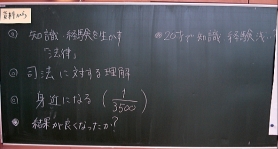 資料から
① 知識・経験を生かす
「法律」
② 司法に対する理解
③ 身近になる (1/3500)
④ 結果が良くなったか?
20才の知識・経験浅い